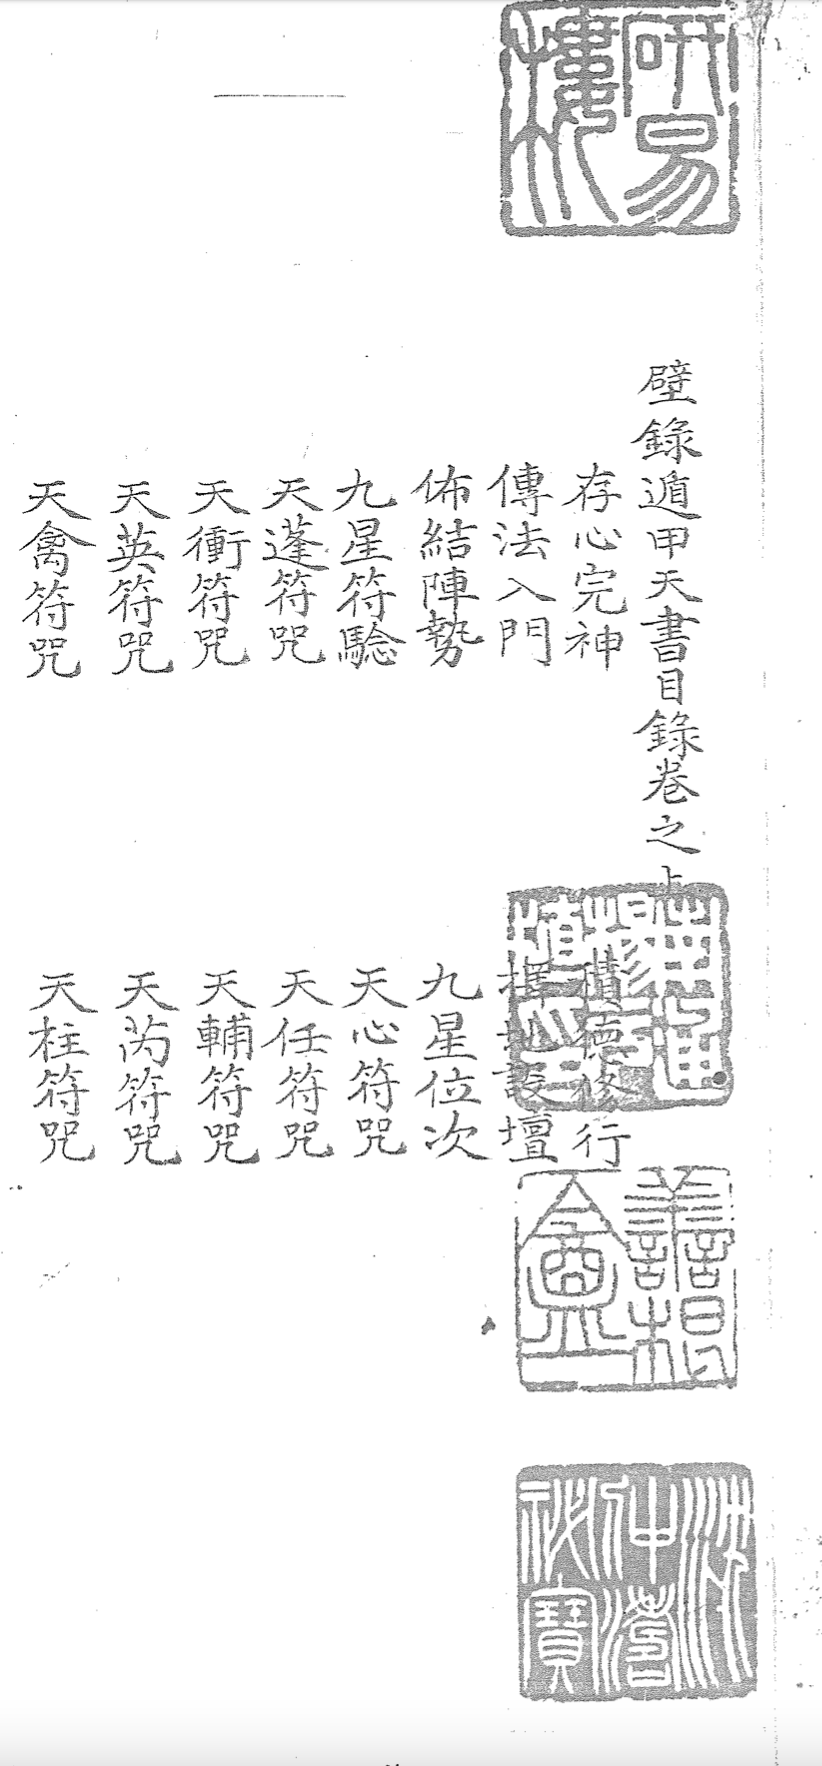 研易樓
壁錄遁甲天書目錄卷之上
存心完神 積德修行
傳法入門 擇地設壇
佈結陣勢 九星位次
九星符騐 天心符咒
天蓬符咒 天任符咒
天衝符咒 天輔符咒
天英符咒 天芮符咒
天禽符咒 天柱符咒
沈仲濤秘寶